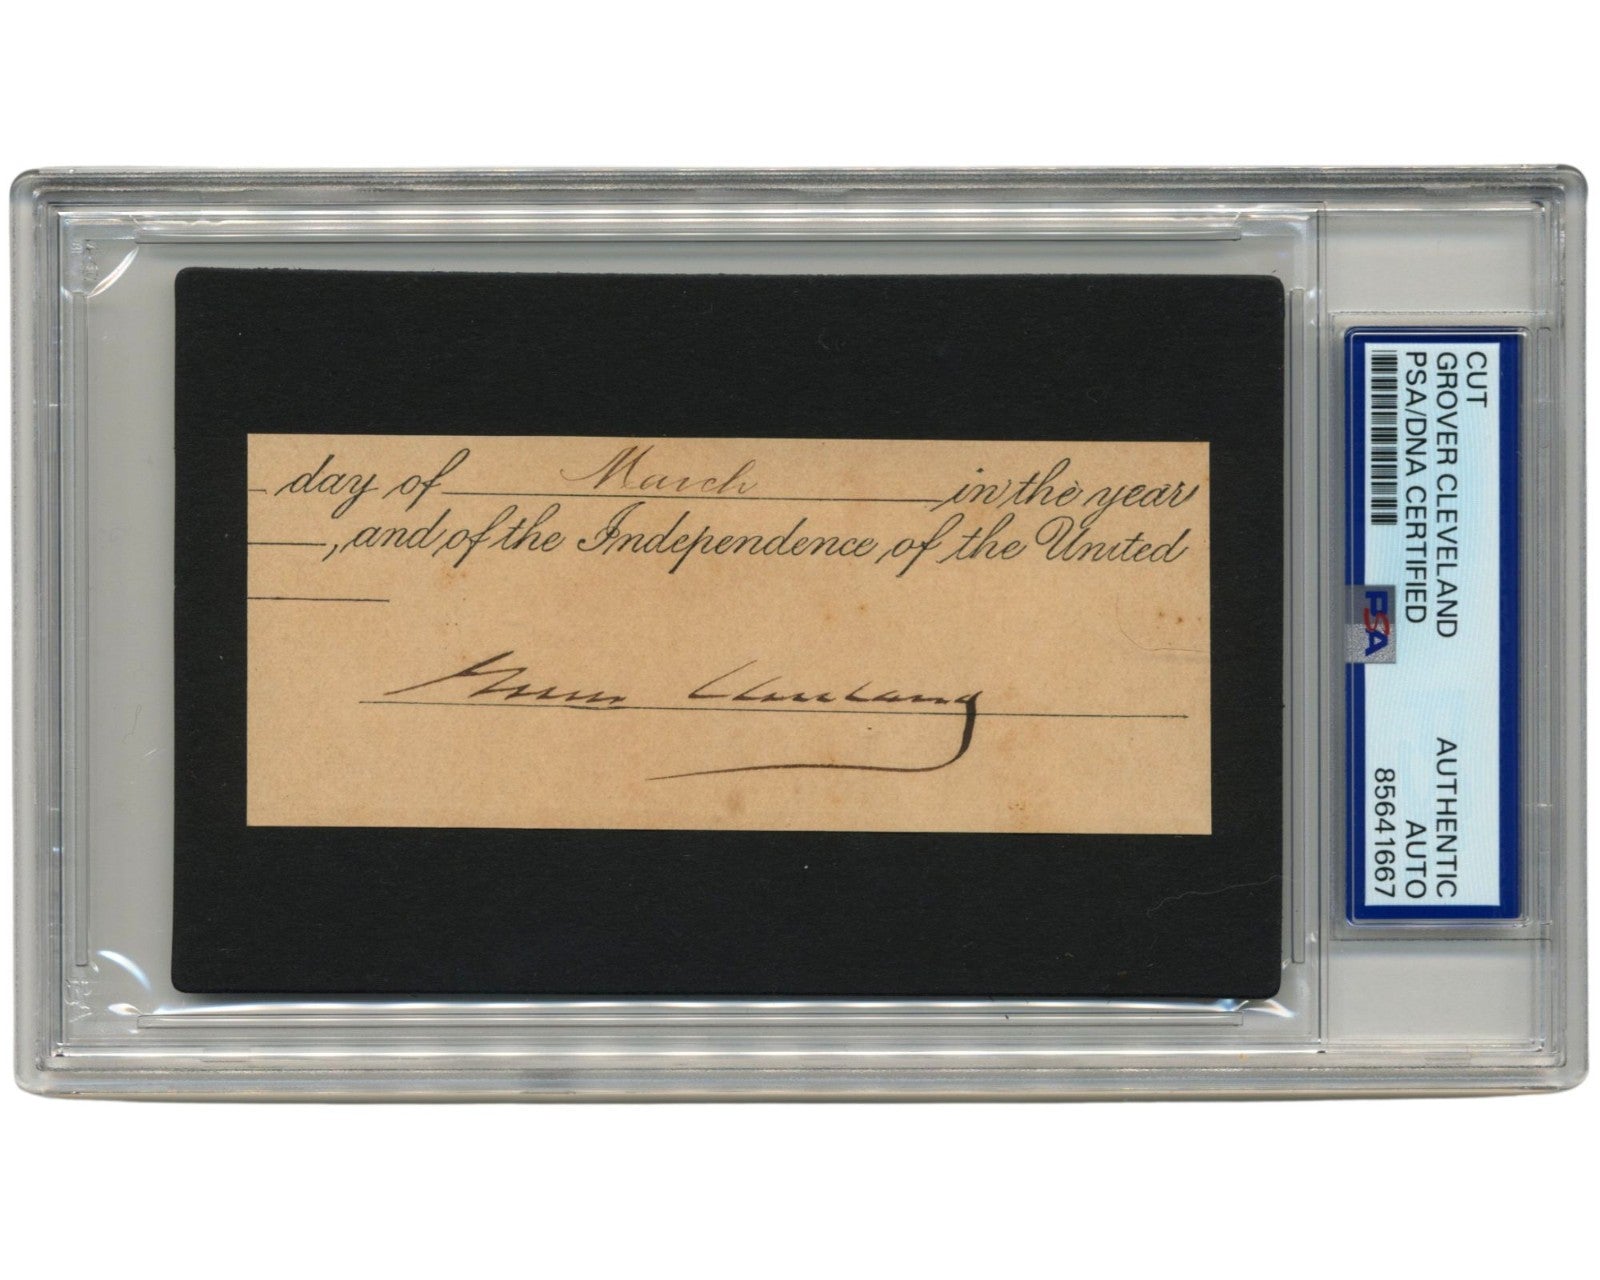 day of March in the year
, and of the Independence of the United
Grover Cleveland
CUT
GROVER CLEVELAND
PSA/DNA CERTIFIED
AUTHENTIC
AUTO
85641667
PSA